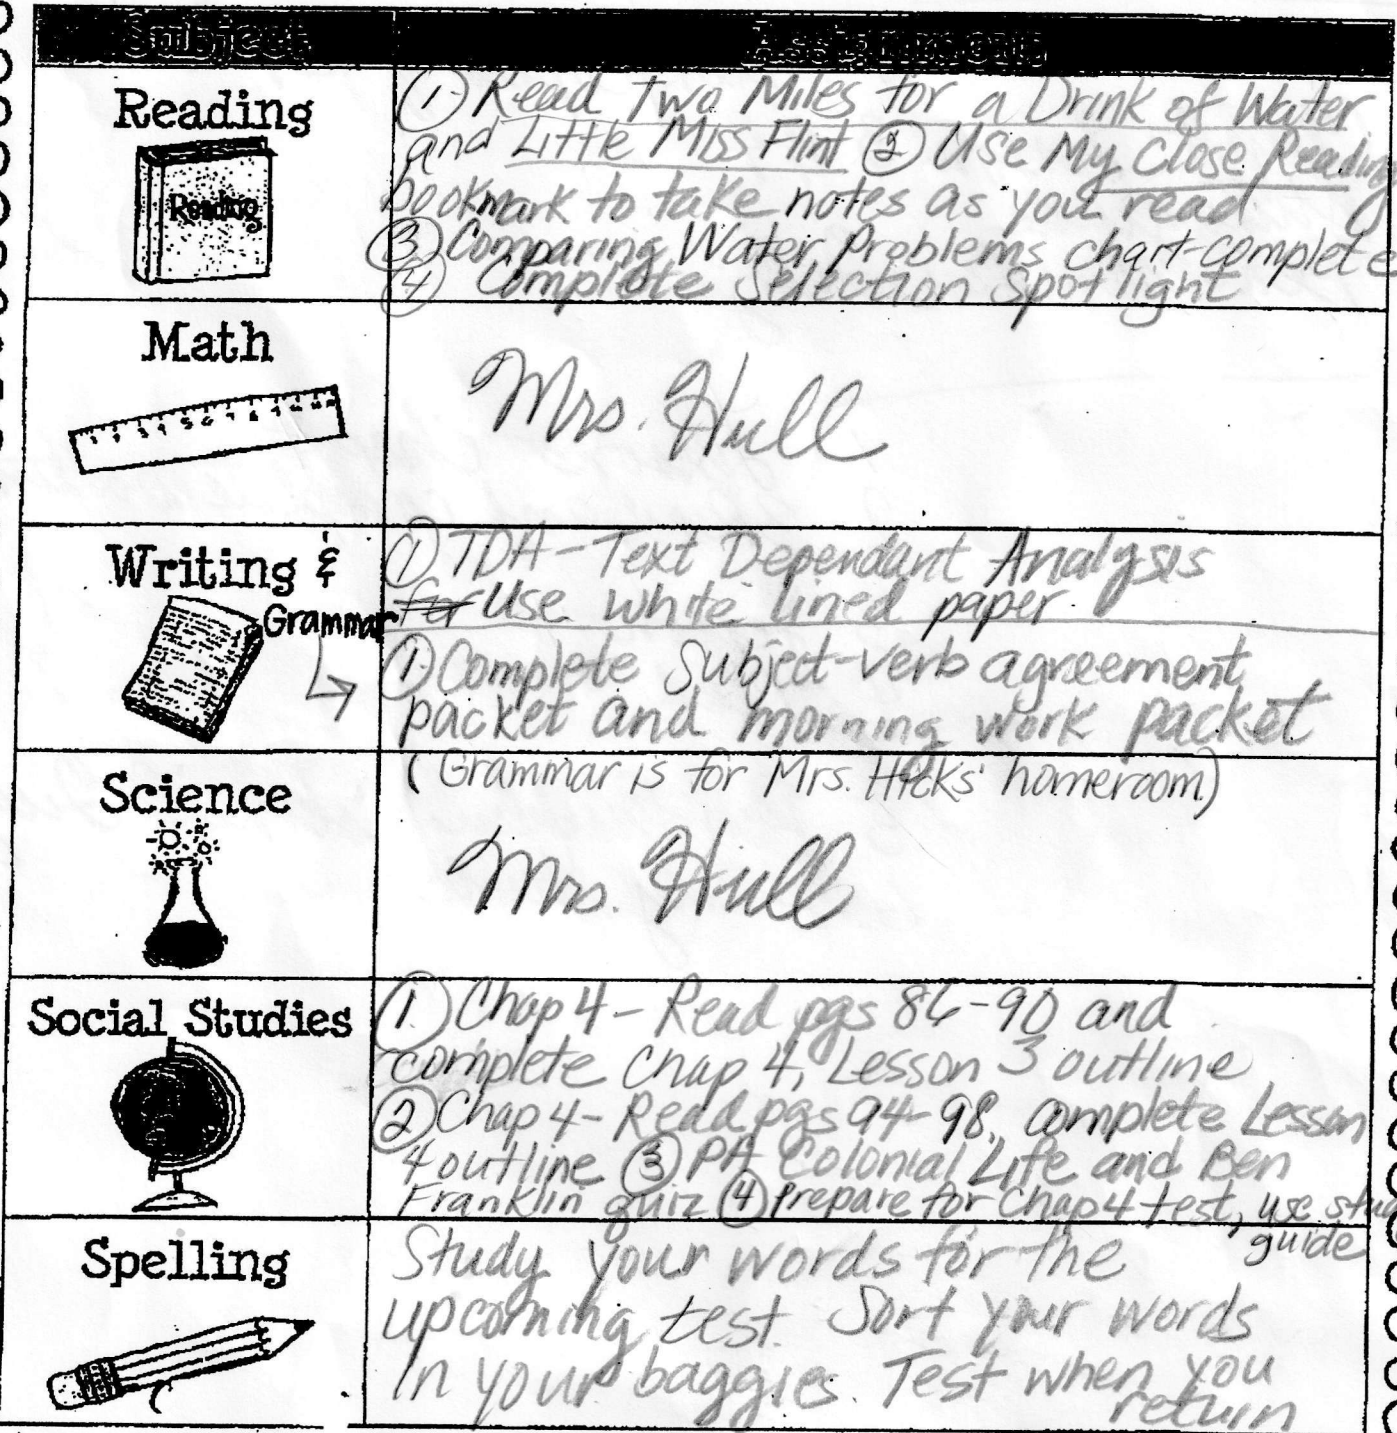 Subject Assignment
Reading
Reading
① Read Two Miles for a Drink of Water
and Little Miss Flint ② Use My Close Reading
bookmark to take notes as you read
③ Comparing Water Problems chart-complete
④ Complete Selection Spotlight
Math
1 2 3 4 5 6 7 8 9
Mrs. Hull
Writing &
Grammar
① TDA - Text Dependant Analysis
for Use white lined paper.
① Complete Subject-verb agreement
packet and morning work packet
Science
(Grammar is for Mrs. Hicks' homeroom)
Mrs. Hull
Social Studies
① Chap 4 - Read pgs 86-90 and
complete Chap 4, Lesson 3 outline
② Chap 4 - Read pgs 94-98, complete Lesson
4 outline ③ PA Colonial Life and Ben
Franklin quiz ④ Prepare for Chap 4 test, use
guide
Spelling
Study your words for the
upcoming test. Sort your words
in your baggies. Test when you
return